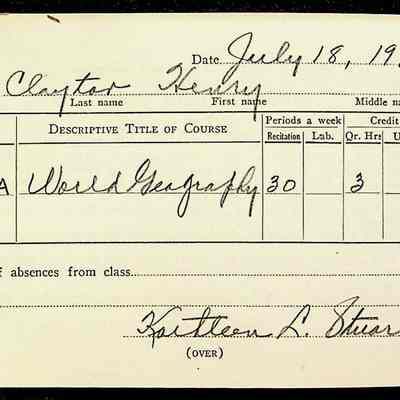 Date July 18, 19
Claytor Henry
Last name First name Middle n
Descriptive Title of Course Periods a week Credit
Recitation Lab. Qr. Hrs. U
A World Geography 30 3
f absences from class
Kathleen L. Stuar
(OVER)